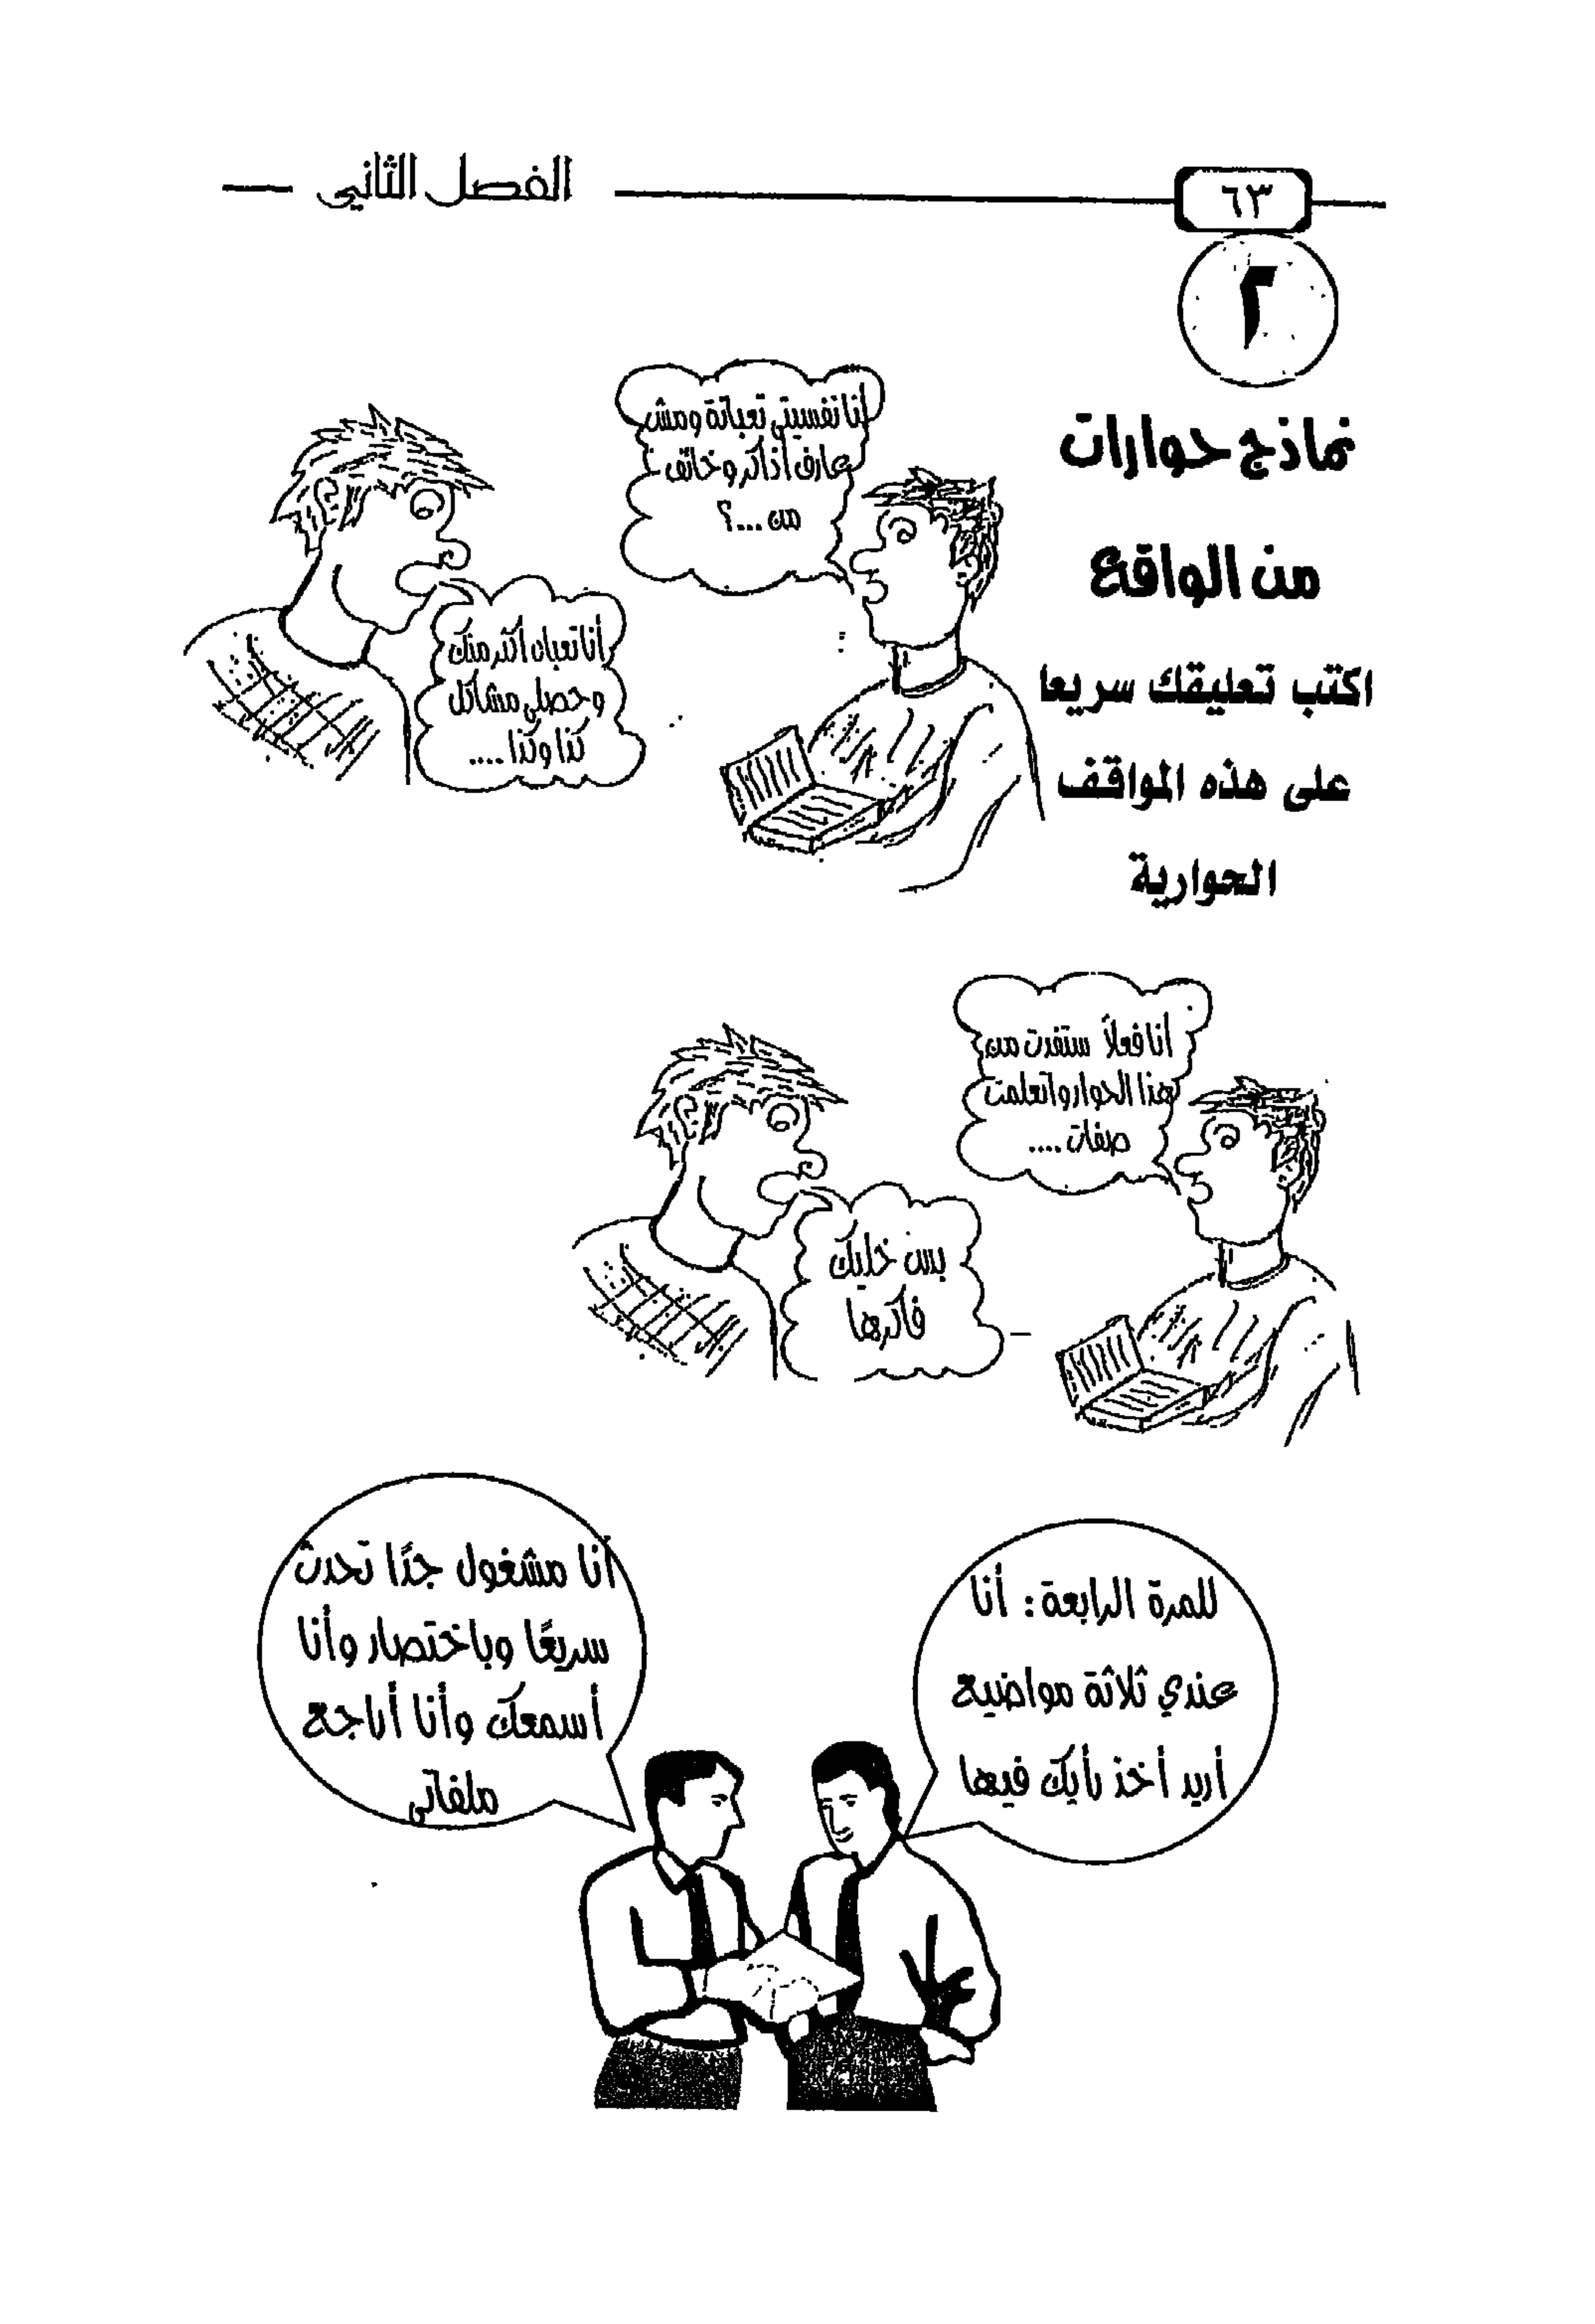 الفصل الثاني
٦٣
٢
نماذج حوارات
من الواقع
اكتب تعليقك سريعا
على هذه المواقف
الحوارية
أنا نفسيتي تعبانة ومش
عارف أذاكر وخائف
من ...؟
أنا تعبان أكثر منك
وحصلي مشاكل
كذا وكذا ....
أنا فعلاً ستفدت من
هذا الحوار واتعلمت
صفات ....
بس خليك
فاكرها
للمرة الرابعة : أنا
عندي ثلاثة مواضيع
أريد أخذ رأيك فيها
أنا مشغول جدًا تحدث
سريعًا وباختصار وأنا
أسمعك وأنا أراجع
ملفاتي